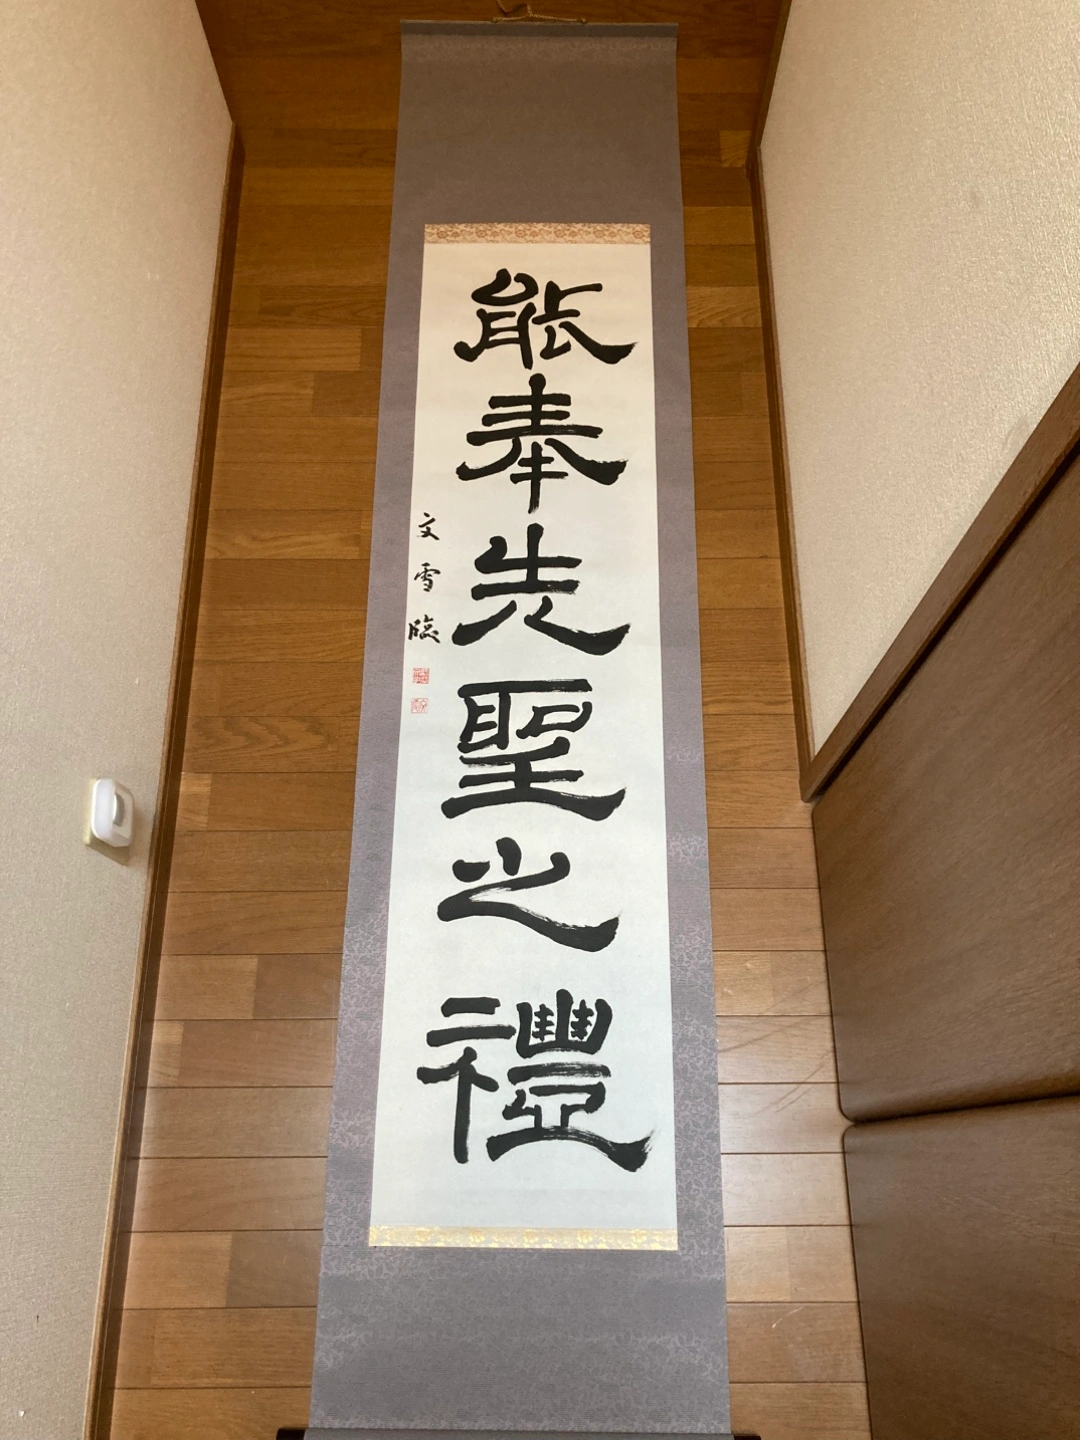 能奉先聖之禮
文雪臨